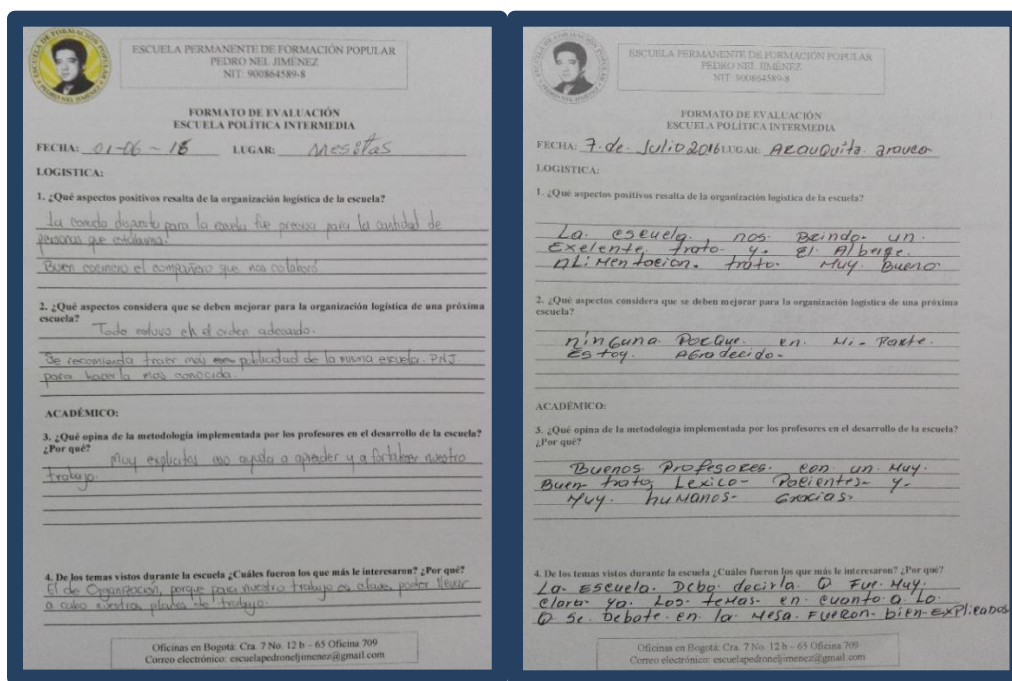 ESCUELA DE FORMACIÓN POPULAR
PEDRO NEL JIMÉNEZ
ESCUELA PERMANENTE DE FORMACIÓN POPULAR
PEDRO NEL JIMÉNEZ
NIT: 900864589-8
FORMATO DE EVALUACIÓN
ESCUELA POLÍTICA INTERMEDIA
FECHA: 01-06-16 LUGAR: Mesitas
LOGISTICA:
1. ¿Qué aspectos positivos resalta de la organización logística de la escuela?
La comida dispuesta para la escuela fue precisa para la cantidad de
personas que estabamos.
Buen cocinero el compañero que nos colaboró
2. ¿Qué aspectos considera que se deben mejorar para la organización logística de una próxima
escuela?
Todo estuvo en el orden adecuado.
Se recomienda traer más publicidad de la misma escuela. PNJ
para hacerla mas conocida.
ACADÉMICO:
3. ¿Qué opina de la metodología implementada por los profesores en el desarrollo de la escuela?
¿Por qué?
Muy explicitos eso ayuda a aprender y a fortalecer nuestro
trabajo.
4. De los temas vistos durante la escuela ¿Cuáles fueron los que más le interesaron? ¿Por qué?
El de Organización, porque para nuestro trabajo es clave, poder llevar
a cabo nuestros planes de trabajo.
Oficinas en Bogotá: Cra. 7 No. 12 b – 65 Oficina 709
Correo electrónico: escuelapedroneljimenez@gmail.com
ESCUELA PERMANENTE DE FORMACIÓN POPULAR
PEDRO NEL JIMÉNEZ
NIT: 900864589-8
FORMATO DE EVALUACIÓN
ESCUELA POLÍTICA INTERMEDIA
FECHA: 7. de. Julio 2016 LUGAR: ARAUQuita. arauca
LOGISTICA:
1. ¿Qué aspectos positivos resalta de la organización logística de la escuela?
La. escuela. nos. Brindo. un.
Exelente. trato. y. El Alberge.
ALiMentacion. trato. Muy. Bueno
2. ¿Qué aspectos considera que se deben mejorar para la organización logística de una próxima
escuela?
ninGuna. PorQue. en. Mi- Parte.
Estoy. AGradecido-
ACADÉMICO:
3. ¿Qué opina de la metodología implementada por los profesores en el desarrollo de la escuela?
¿Por qué?
Buenos. Profesores. con un. Muy.
Buen- trato, Lexico- Pacientes- y-
Muy. huManos- Gracias.
4. De los temas vistos durante la escuela ¿Cuáles fueron los que más le interesaron? ¿Por qué?
La- Escuela. Debo. decirla. Q Fue. Muy.
Clara- ya. Los- teMas- en. cuanto- a. Lo.
Q Se. Debate. en. la- Mesa. FUeRon- bien- EXPlicados
Oficinas en Bogotá: Cra. 7 No. 12 b – 65 Oficina 709
Correo electrónico: escuelapedroneljimenez@gmail.com